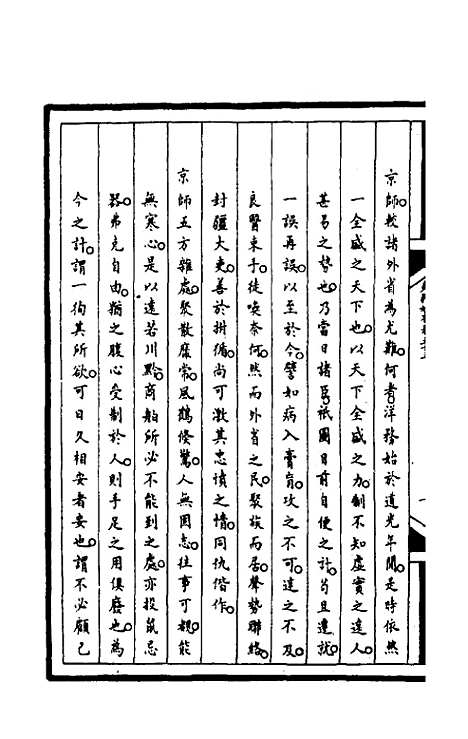 京師較諸外省為尤難何者洋務始於道光年間是時依然
一全盛之天下也以天下全盛之力制不知虛實之遠人
甚易之勢也乃當日諸臣祇圖目前自便之計苟且遷就
一誤再誤以至於今譬如病入膏肓攻之不可達之不及
良醫束手徒喚奈何然而外省之民聚族而居聲勢聯絡
封疆大吏善於拊循尚可激其忠憤之情同仇偕作
京師五方雜處聚散靡常風鶴倏驚人無固志往事可覩能
無寒心是以遠若川黔商舶所必不能到之處亦投鼠忌
器弗克自由猶之腹心受制於人則手足之用俱廢也為
今之計謂一徇其所欲可日久相安者妄也謂不必顧己